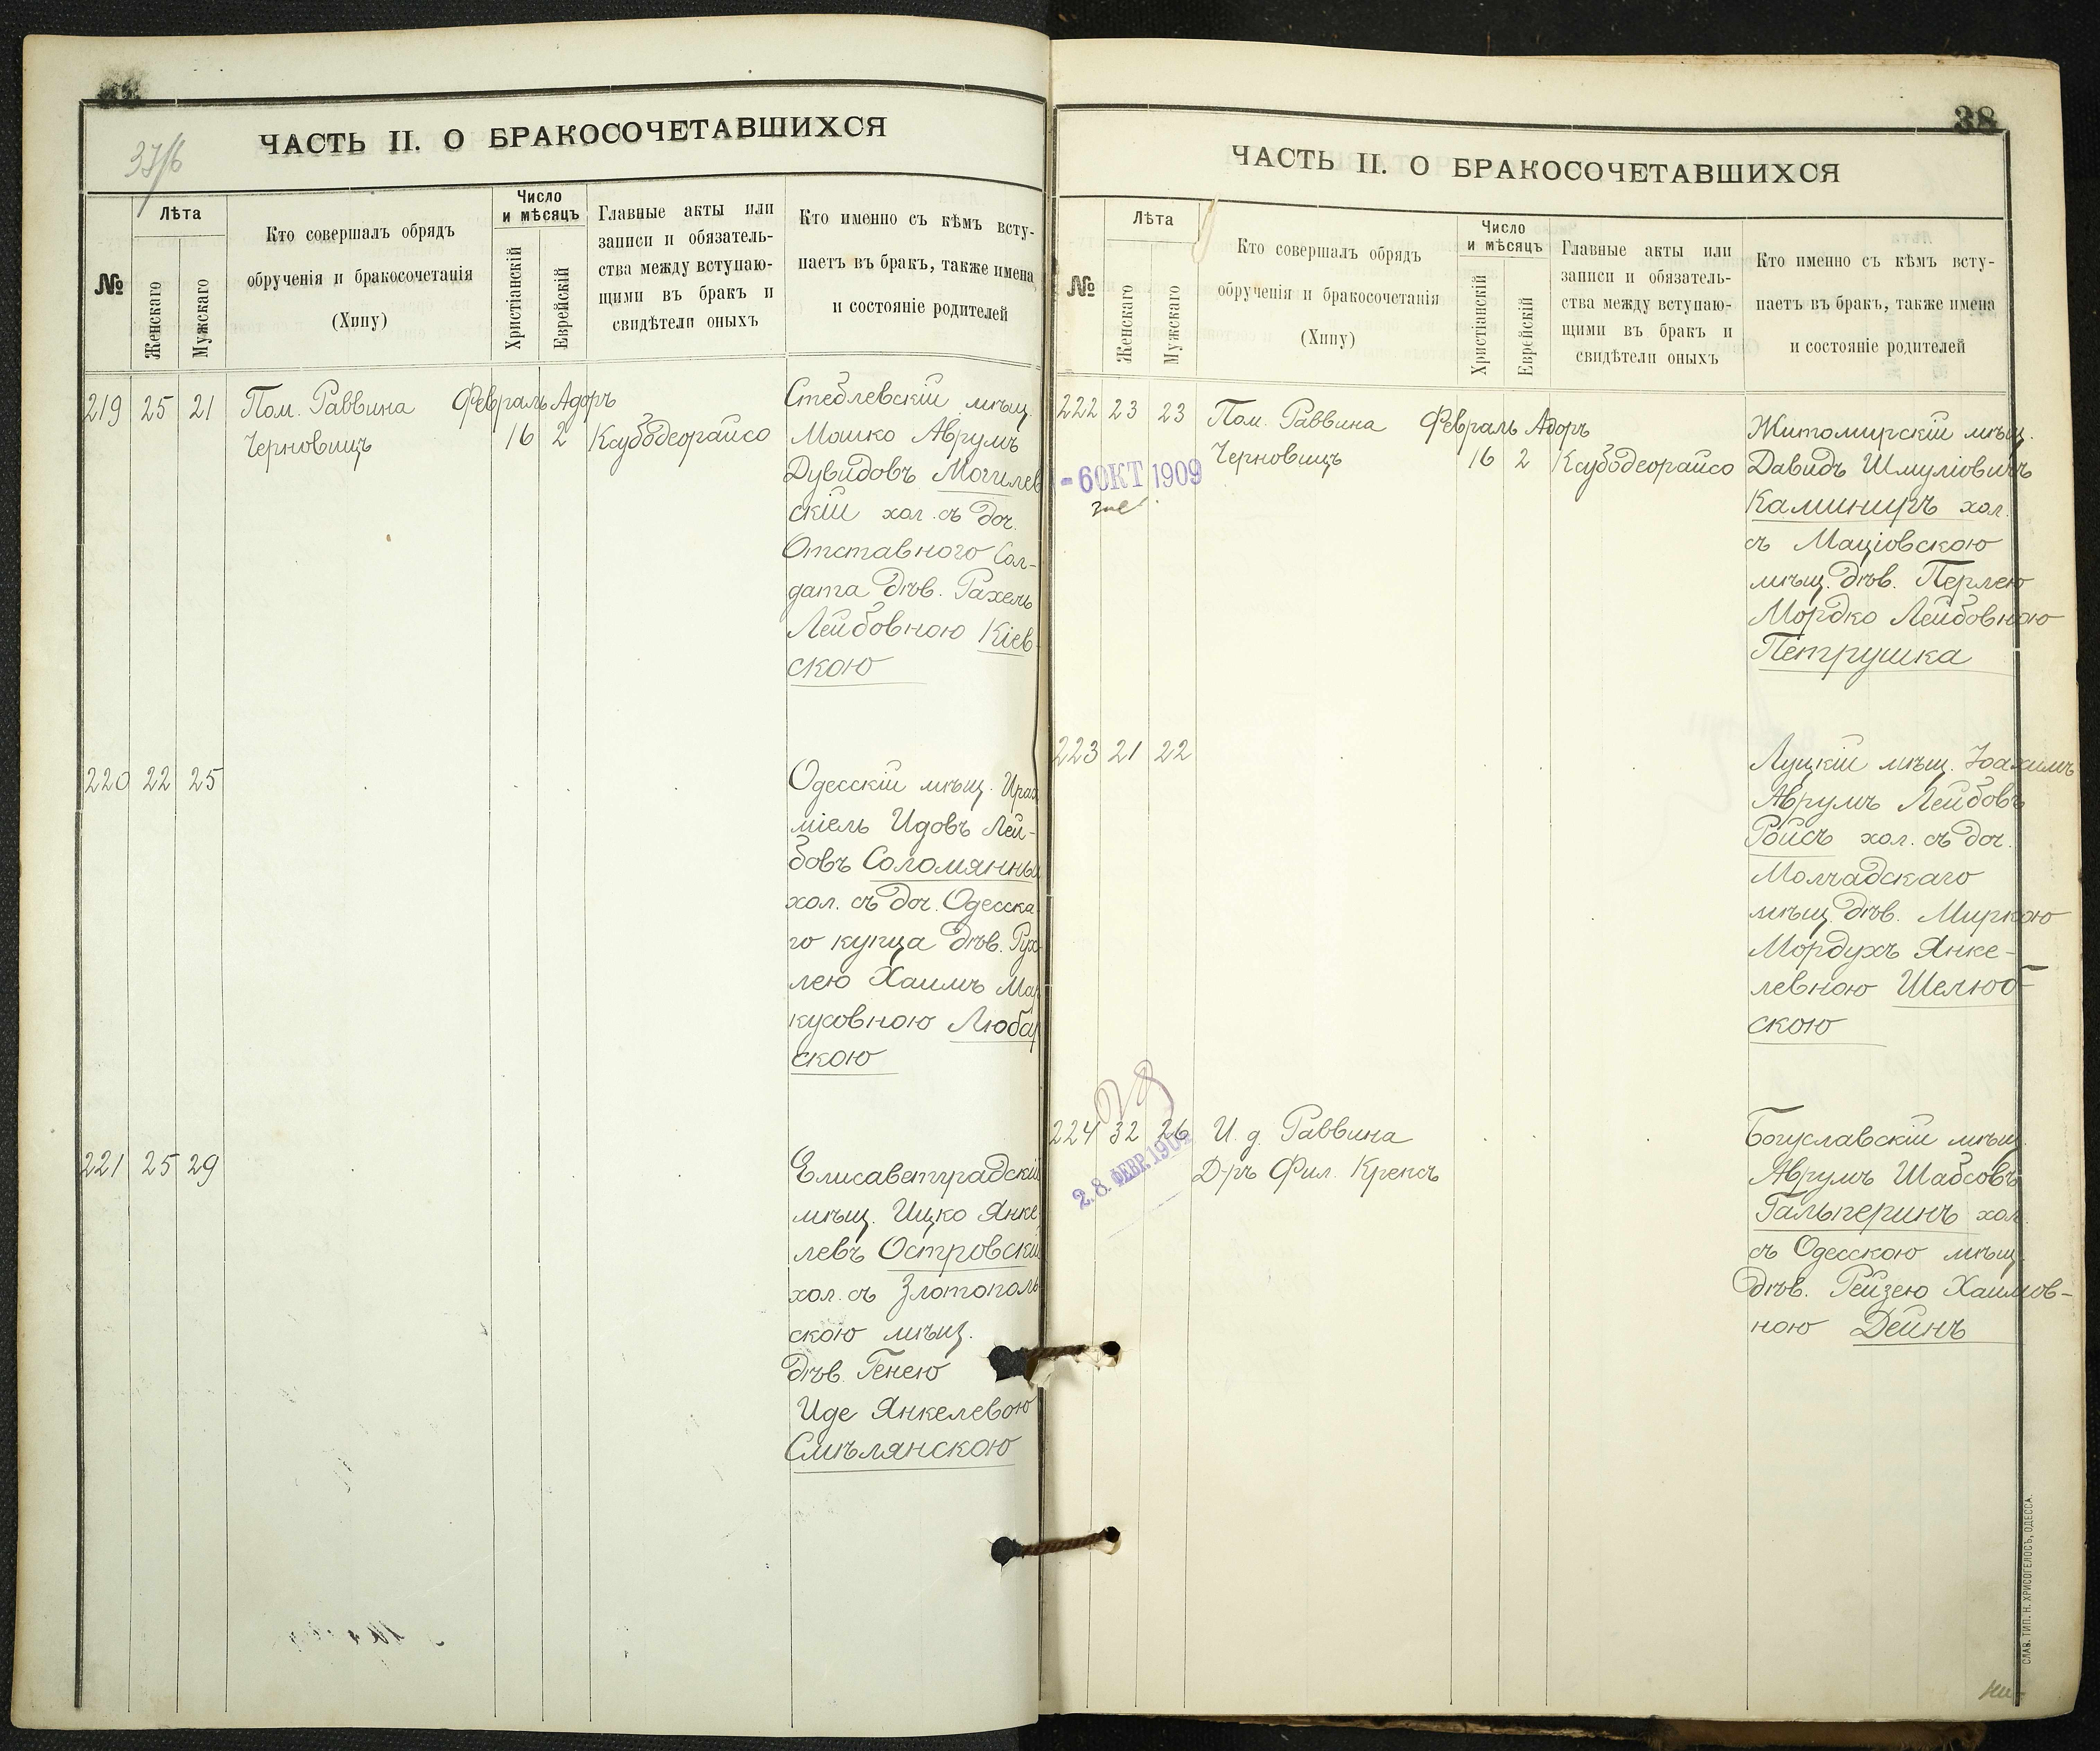 37/б
ЧАСТЬ II. О БРАКОСОЧЕТАВШИХСЯ
№
Лѣта
Женскаго
Мужскаго
Кто совершалъ обрядъ
обрученія и бракосочетанія
(Хипу)
Число
и мѣсяцъ
Христіанскій
Еврейскій
Главные акты или
записи и обязатель-
ства между вступаю-
щими въ бракъ и
свидѣтели оныхъ
Кто именно съ кѣмъ всту-
паетъ въ бракъ, также имена
и состояніе родителей
219 25 21 Пом. Раввина Февраль Адоръ
Черновицъ 16 2 Ксубодеорайсо
Стеблевскій мѣщ.
Мошко Аврумъ
Дувидовъ Могилев
скій хол. съ доч.
Отставного Сол-
дата дѣв. Рахель
Лейбовною Кіев
скою
220 22 25
Одесскій мѣщ. Ирах
міель Идовъ Лей-
бовъ Соломянный
хол. съ доч. Одесска
го купца дѣв. Рух
лею Хаимъ Мар
кусовною Любар
скою
221 25 29
Елисаветградскій
мѣщ. Ицко Янке
левъ Островскій
хол. съ Златополь
скою мѣщ.
дѣв. Генею
Иде Янкелевою
Смѣлянскою
38
ЧАСТЬ II. О БРАКОСОЧЕТАВШИХСЯ
№
Лѣта
Женскаго
Мужскаго
Кто совершалъ обрядъ
обрученія и бракосочетанія
(Хипу)
Число
и мѣсяцъ
Христіанскій
Еврейскій
Главные акты или
записи и обязатель-
ства между вступаю-
щими въ бракъ и
свидѣтели оныхъ
Кто именно съ кѣмъ всту-
паетъ въ бракъ, также имена
и состояніе родителей
222 23 23 Пом. Раввина Февраль Адоръ
Черновицъ 16 2 Ксубодеорайсо
-6 ОКТ 1909
Житомирскій мѣщ.
Давидъ Шмуліовичъ
Каминицъ хол.
съ Маціовскою
мѣщ. дѣв. Перлею
Мордко Лейбовною
Петрушка
223 21 22
Луцкій мѣщ. Іоахимъ
Аврумъ Лейбовъ
Ройсъ хол. съ доч.
Молчадскаго
мѣщ. дѣв. Миркою
Мордухъ Янке-
левною Шелюб-
скою
224 32 26 И. д. Раввина
Д-ръ Фил. Крепсъ
28 ФЕВР. 190
Богуславскій мѣщ.
Аврумъ Шабсовъ
Гальперинъ хол.
съ Одесскою мѣщ.
дѣв. Рейзею Хаимов-
ною Дейнъ
СЛАВ. ТИП. Н. ХРИСОГЕЛОСЪ, ОДЕССА.